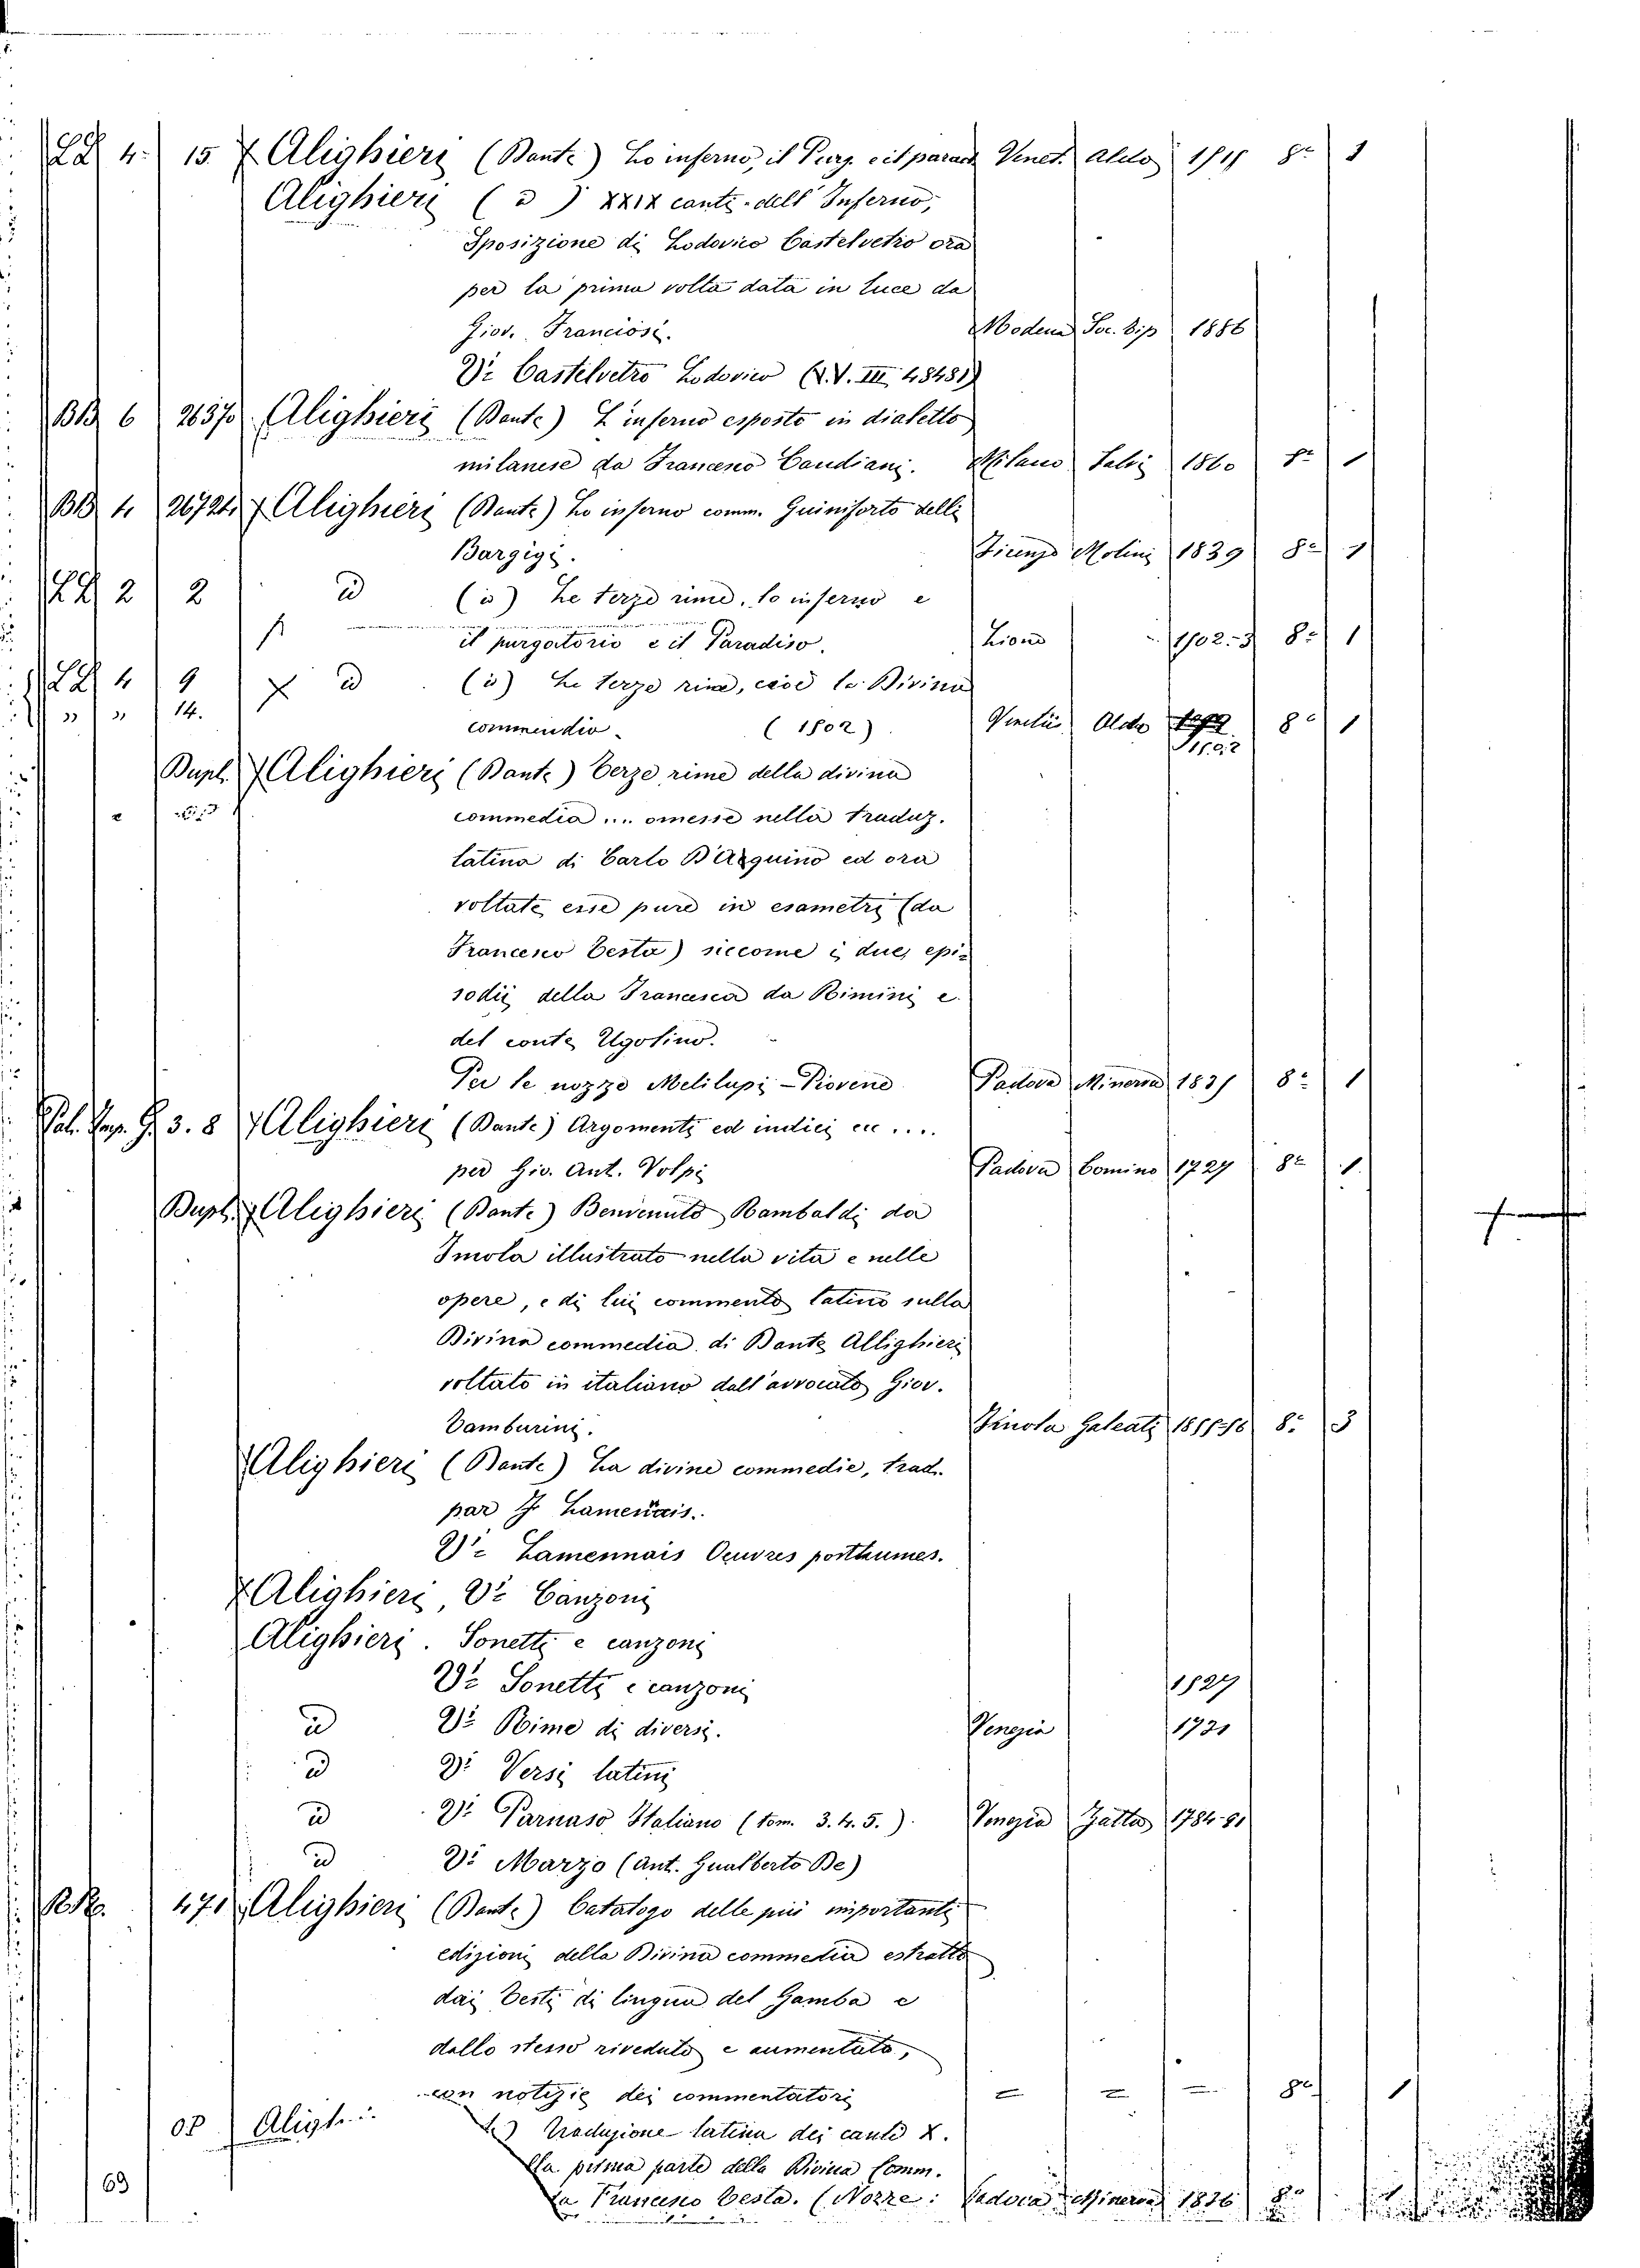 4. 15 Alighieri (Dante) Lo inferno, il Purg. e il parad. Venet. Aldo 8° 1
Alighieri ( ) XXIX canti dell' Inferno,
Sposizione di Lodovico Castelvetro ora
per la prima volta data in luce da
Giov. Franciosi. Modena Soc. tip 1886
V: Castelvetro Lodovico (V. III, 48481)
BB 6 26370 Alighieri (Dante) L'inferno esposto in dialetto
milanese da Francesco Candiani. Milano Salvi 1860 8° 1
BB 4 26724 Alighieri (Dante) Lo inferno comm. Guiniforto delli
Bargigi. Firenze Molini 1839 8° 1
2 2 id (id) Le terze rime, lo inferno e
il purgatorio e il Paradiso. Lione 1502-3 8° 1
4 9 id (id) Le terze rime, cioè la Divina
" " 14.
commendia (1502) Aldo 1502 8° 1
Dupl. Alighieri (Dante) Terze rime della divina
commedia ... omesse nella traduz.
latina di Carlo D'Aquino ed ora
voltate esse pure in esametri (da
Francesco Testa) siccome i due epi-
sodii della Francesca da Rimini e
del conte Ugolino.
Per le nozze Melilupi - Piovene Padova Minerva 8° 1
G. 3. 8 Alighieri (Dante) Argomenti ed indici ec ....
per Gio. Ant. Volpi Padova Comino 1727 8° 1
Dupl. Alighieri (Dante) Benvenuto Rambaldi da
Imola illustrato nella vita e nelle
opere, e di lui commento latino sulla
Divina commedia di Dante Allighieri
voltato in italiano dall'avvocato Giov.
Tamburini. Imola Galeati 1855-56 8° 3
Alighieri (Dante) La divine commedie, trad.
par F. Lamennais.
V: Lamennais Oeuvres posthumes.
Alighieri, V: Canzoni
Alighieri. Sonetti e canzoni
V: Sonetti e canzoni 1527
id V: Rime di diversi. Venezia 1731
id V: Versi latini
id V: Parnaso Italiano (tom. 3. 4. 5.). Venezia Zatta 1784-91
id V: Marzo (Ant. Gualberto De)
471 Alighieri (Dante) Catalogo delle più importanti
edizioni della Divina commedia estratto
dai Testi di lingua del Gamba e
dallo stesso riveduto e aumentato,
con notizie dei commentatori - - - 8° 1
Aligh.
Traduzione latina dei canti X.
prima parte della Divina Comm.
da Francesco Testa. (Nozze: Padova Minerva 1836 8°
69